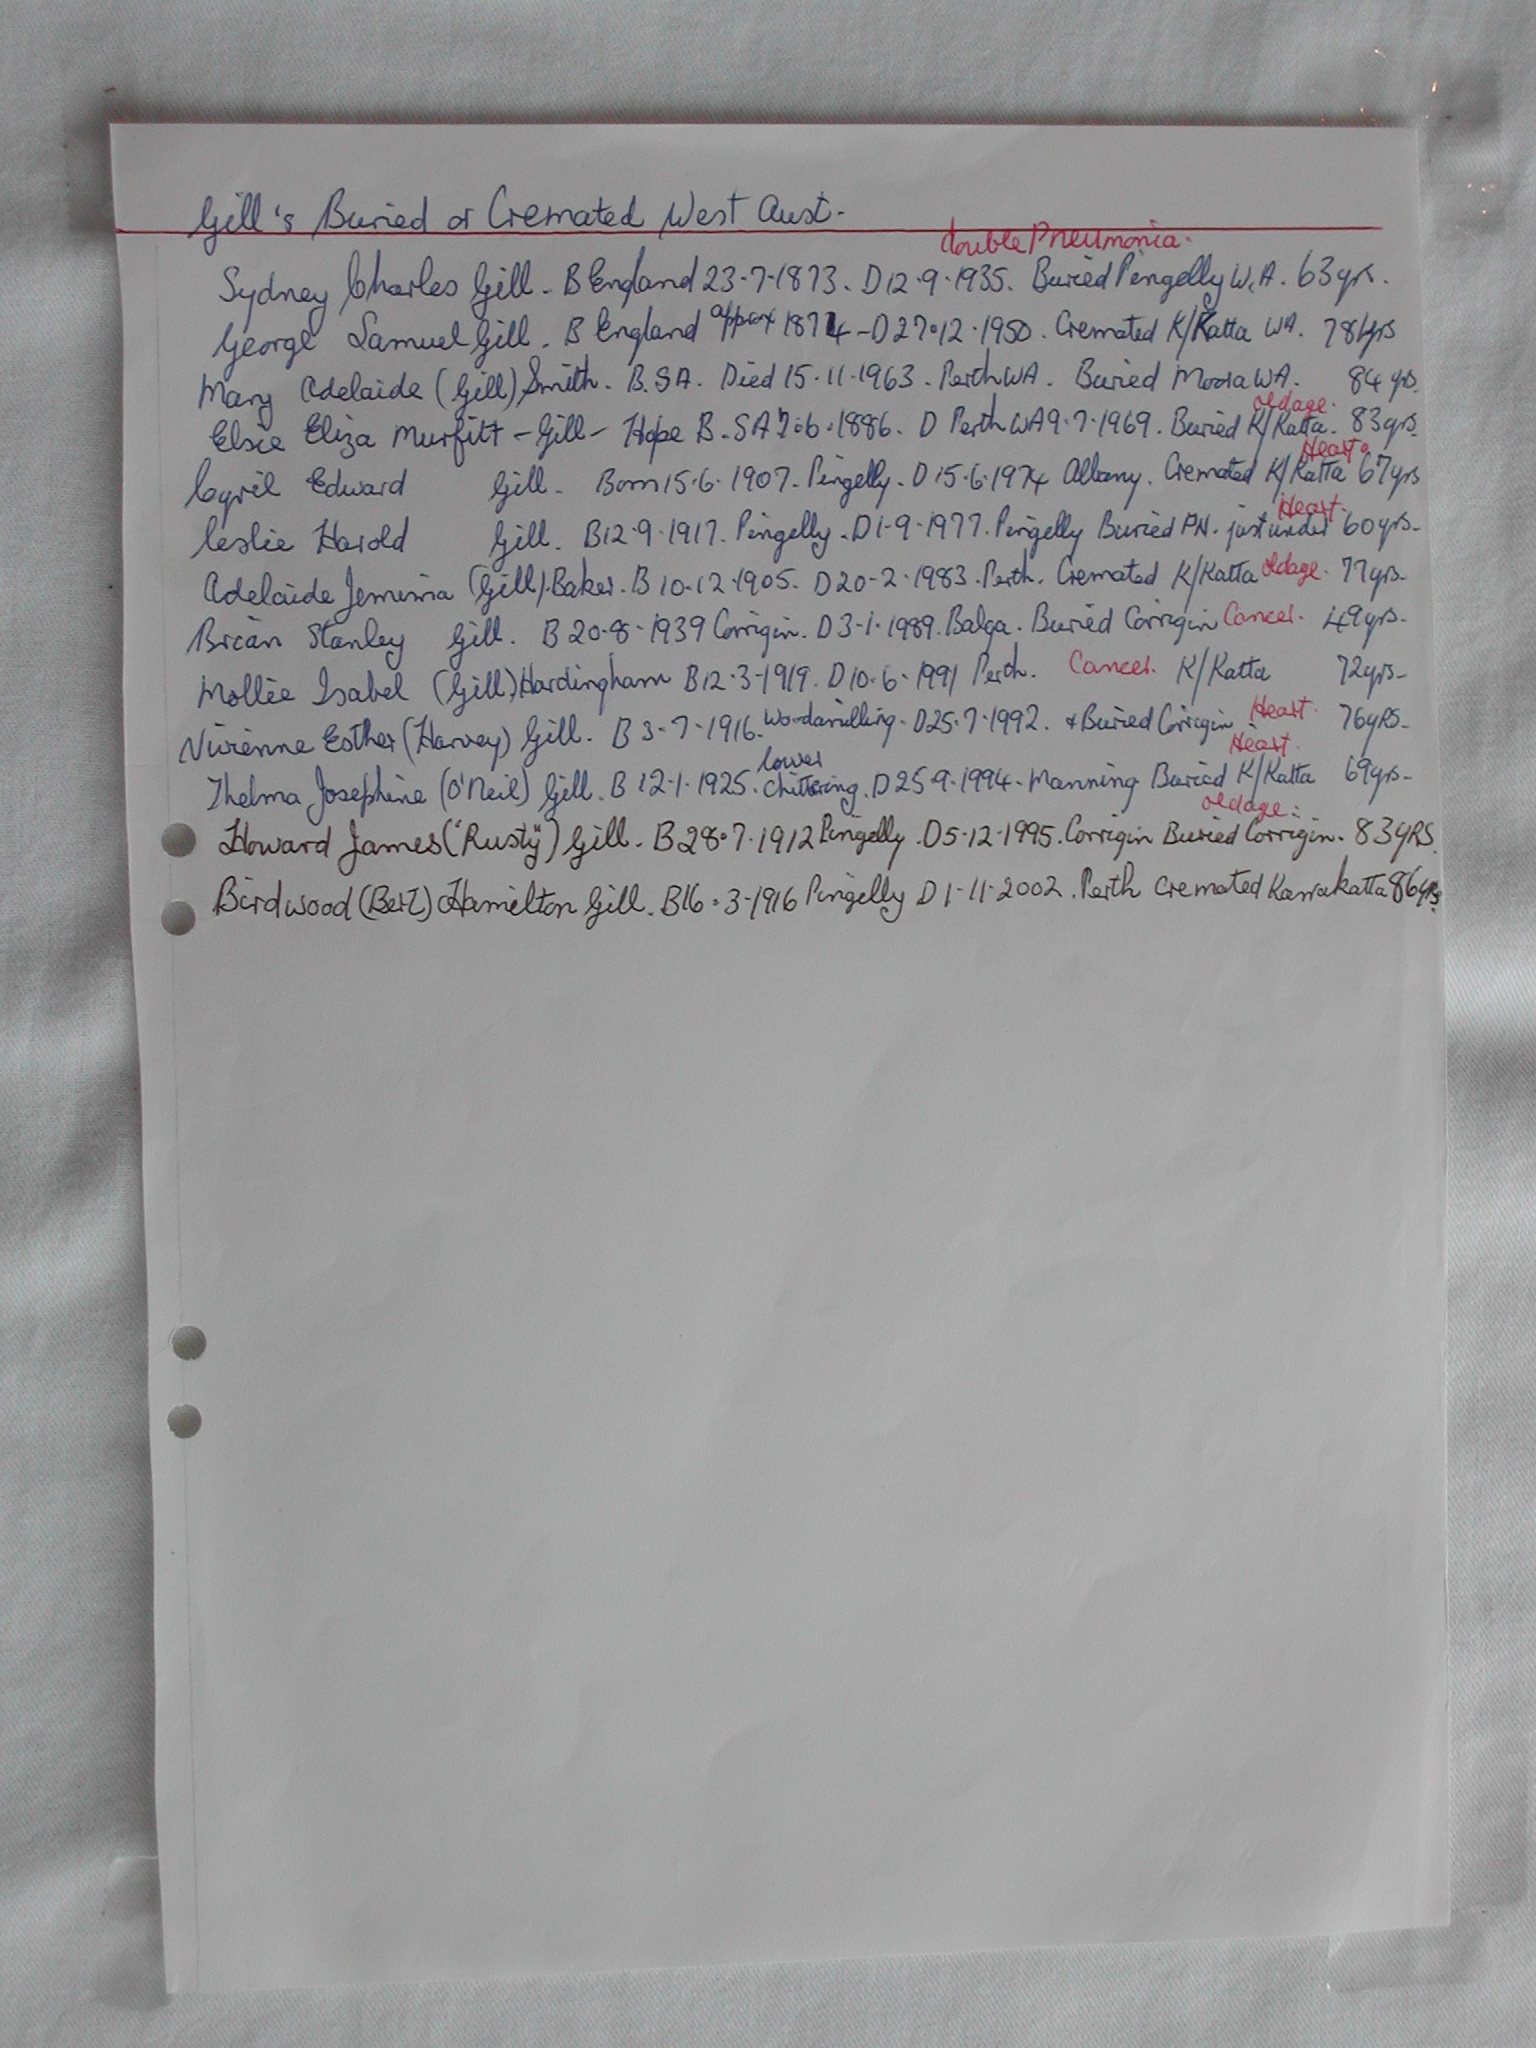 Gill's Buried or Cremated West Aust.
double Pneumonia.
Sydney Charles Gill. B England 23.7.1873. D 12.9.1935. Buried Pingelly W.A. 63yrs.
George Samuel Gill. B England approx 1874 - D 27.12.1950. Cremated K/Katta WA. 78yrs
Mary Adelaide (Gill) Smith. B.SA. Died 15.11.1963. Perth WA. Buried Moora WA. 84 yrs.
oldage.
Elsie Eliza Murfitt - Gill - Hope B. SA 7.6.1886. D Perth WA 9.7.1969. Buried K/Katta. 83yrs.
Heart.
Cyril Edward Gill. Born 15.6.1907. Pingelly. D 15.6.1974 Albany. Cremated K/Katta 67yrs
Heart.
Leslie Harold Gill. B 12.9.1917. Pingelly. D 1-9-1977. Pingelly Buried PN. just under 60yrs.
Adelaide Jemima (Gill). Baker. B 10.12.1905. D 20-2-1983. Perth. Cremated K/Katta oldage. 77yrs.
Brian Stanley Gill. B 20.8.1939 Corrigin. D 3-1-1989. Balga. Buried Corrigin Cancer. 49yrs.
Mollie Isabel (Gill) Hardingham B 12.3-1919. D 10.6.1991 Perth. Cancer. K/Katta 72yrs.
Vivienne Esther (Harvey) Gill. B 3-7-1916. Woodanilling. D 25.7.1992. + Buried Corrigin. Heart. 76yRS.
Heart.
lower
Thelma Josephine (O'Neil) Gill. B 12.1.1925. Chittering. D 25.9.1994. Manning Buried K/Katta 69yrs.
oldage.
Howard James ("Rusty") Gill. B 28.7.1912 Pingelly. D 5-12-1995. Corrigin Buried Corrigin. 83yRS.
Birdwood (Bert) Hamilton Gill. B 16.3-1916 Pingelly D 1-11-2002. Perth Cremated Karrakatta 86yrs.